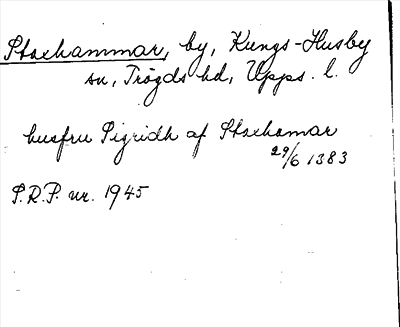 Stockhammar, by, Kungs-Husby
sn, Trögds hd, Upps. l.
husfru Sigridh af Stockhamar
29/6 1383
S.R.P. nr. 1945